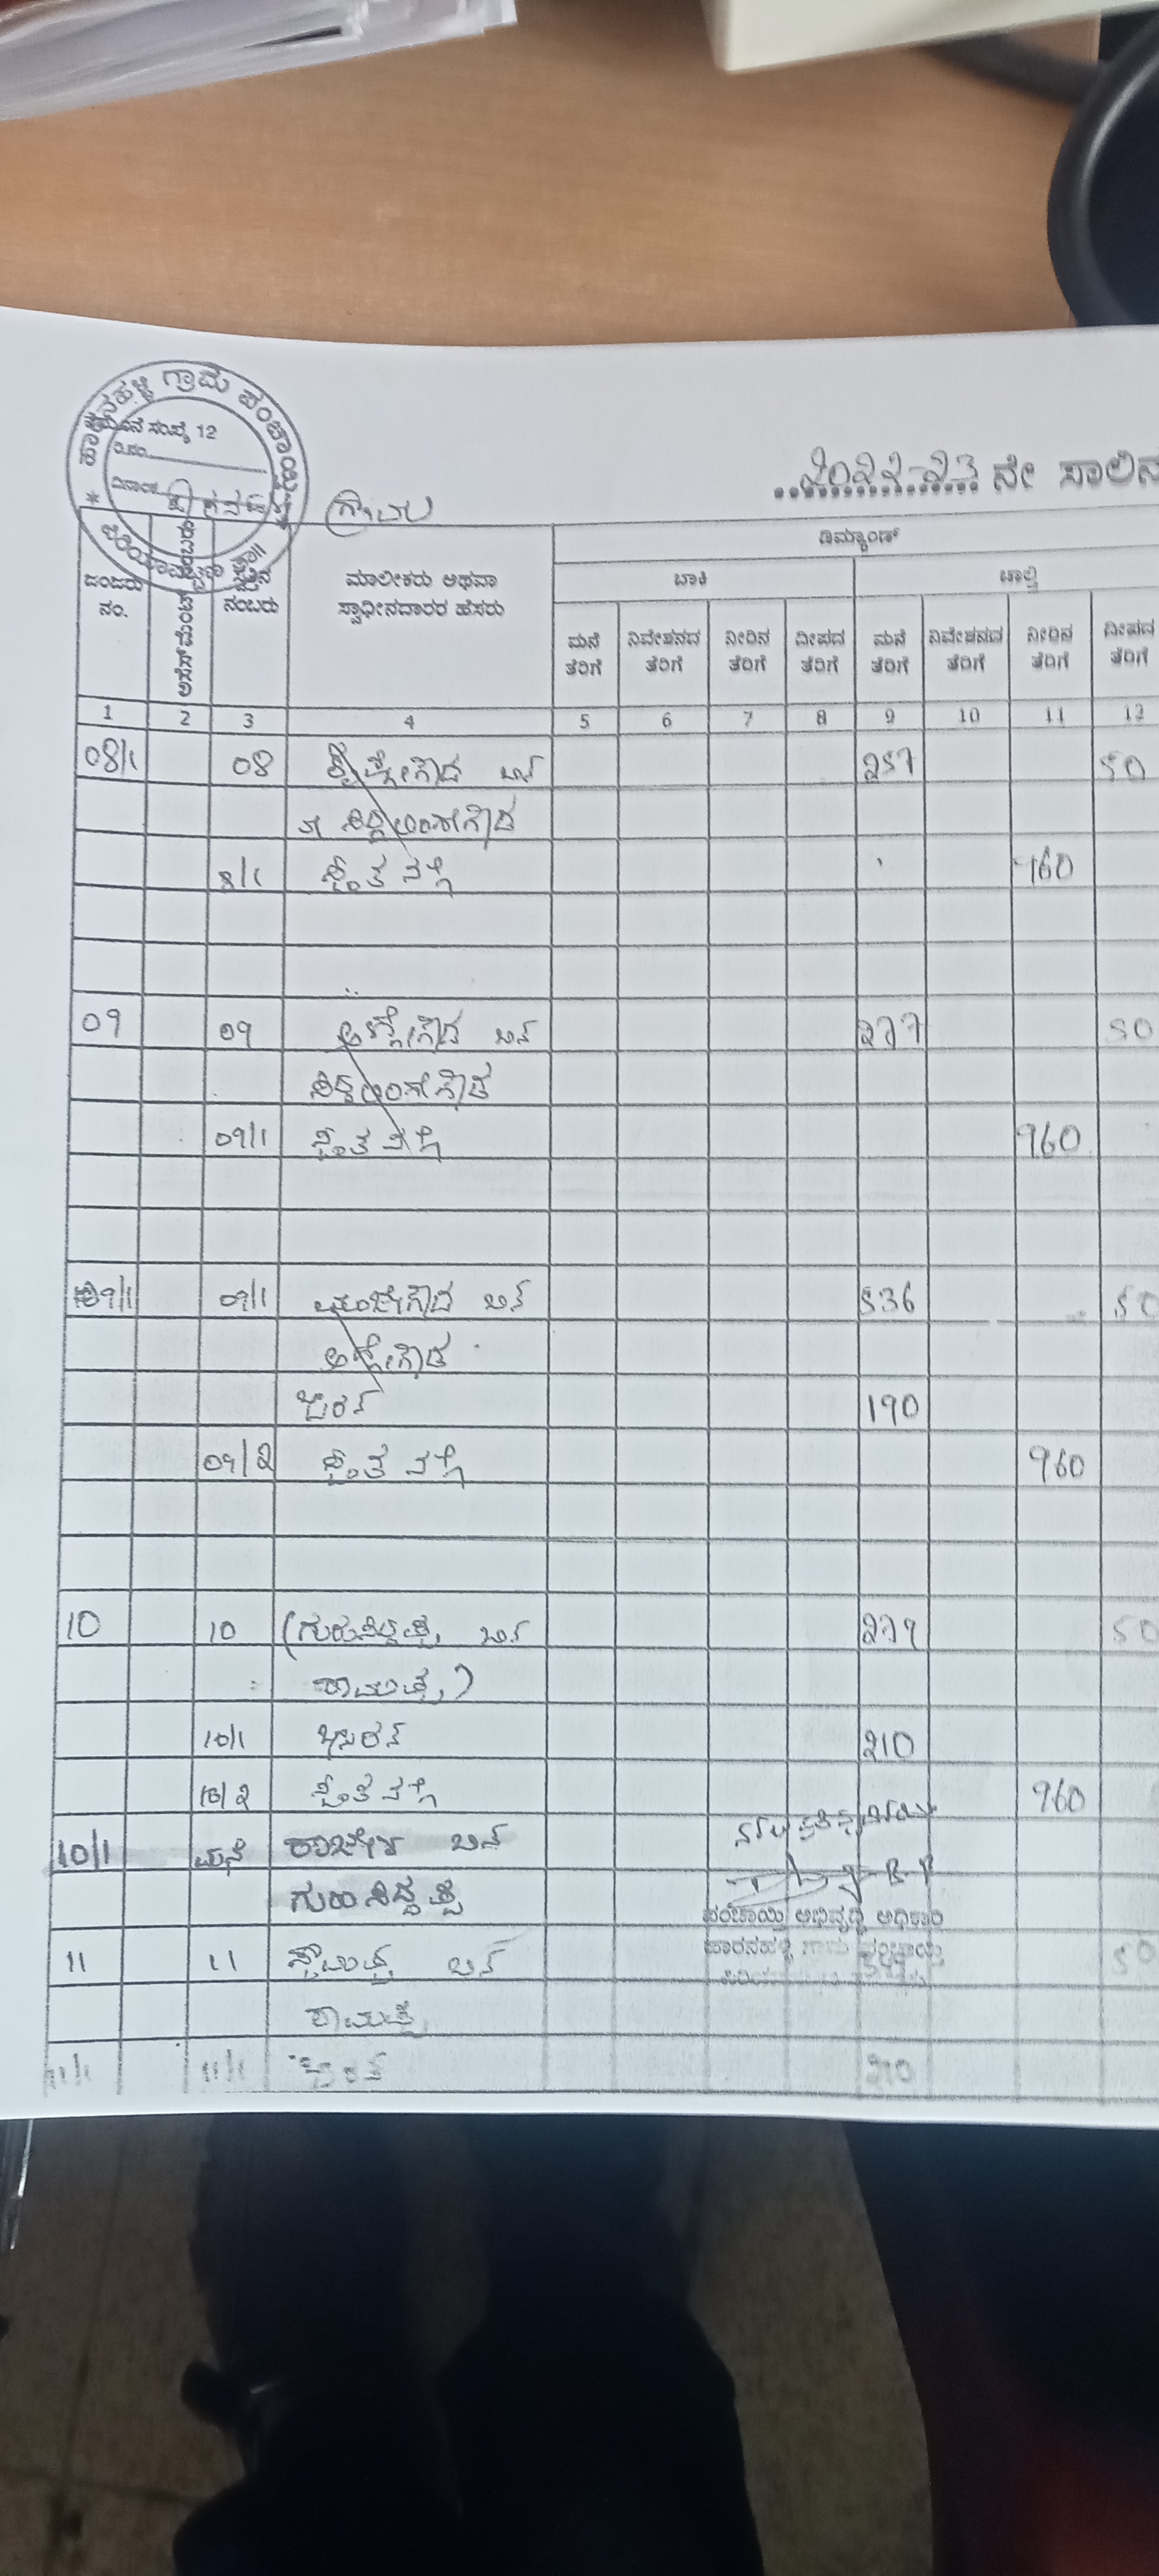 ಹಾರನಹಳ್ಳಿ ಗ್ರಾಮ ಪಂಚಾಯ್ತಿ
ನಮೂನೆ ಸಂಖ್ಯೆ 12
ವಿ.ಸಂ.
ದಿನಾಂಕ
ಗ್ರಾಮ
2022-23 ನೇ ಸಾಲಿನ
ಡಿಮ್ಯಾಂಡ್
ಬಾಕಿ ಚಾಲ್ತಿ
ಜಂಜರು ನಂ. ಅಸೆಸ್‌ಮೆಂಟ್ ನಂಬರು ಸ್ವತ್ತಿನ ನಂಬರು ಮಾಲೀಕರು ಅಥವಾ ಸ್ವಾಧೀನದಾರರ ಹೆಸರು ಮನೆ ತೆರಿಗೆ ನಿವೇಶನದ ತೆರಿಗೆ ನೀರಿನ ತೆರಿಗೆ ದೀಪದ ತೆರಿಗೆ ಮನೆ ತೆರಿಗೆ ನಿವೇಶನದ ತೆರಿಗೆ ನೀರಿನ ತೆರಿಗೆ ದೀಪದ ತೆರಿಗೆ
1 2 3 4 5 6 7 8 9 10 11 12
08/1 08 ಬಿನ್ 257 50
ಸಿದ್ದಲಿಂಗೇಗೌಡ
8/1 ಸ್ವಂತ ನಲ್ಲಿ 960
09 09 ಬಿನ್ 277 50
ಸಿದ್ದಲಿಂಗೇಗೌಡ
09/1 ಸ್ವಂತ ನಲ್ಲಿ 960
09/1 09/1 ಬಿನ್ 536 50
190
09/2 ಸ್ವಂತ ನಲ್ಲಿ 960
10 10 (ಗುರುಸಿದ್ದಪ್ಪ ಬಿನ್ 279 50
ರಾಮಪ್ಪ)
10/1 210
10/2 ಸ್ವಂತ ನಲ್ಲಿ 960
10/1 ಮನೆ ರಾಜೇಶ ಬಿನ್
ಗುರುಸಿದ್ದಪ್ಪ
ಪಂಚಾಯ್ತಿ ಅಭಿವೃದ್ಧಿ ಅಧಿಕಾರಿ
ಹಾರನಹಳ್ಳಿ ಗ್ರಾಮ ಪಂಚಾಯ್ತಿ
11 11 ಬಿನ್ 50
ರಾಮಪ್ಪ
11/1 11/1 210